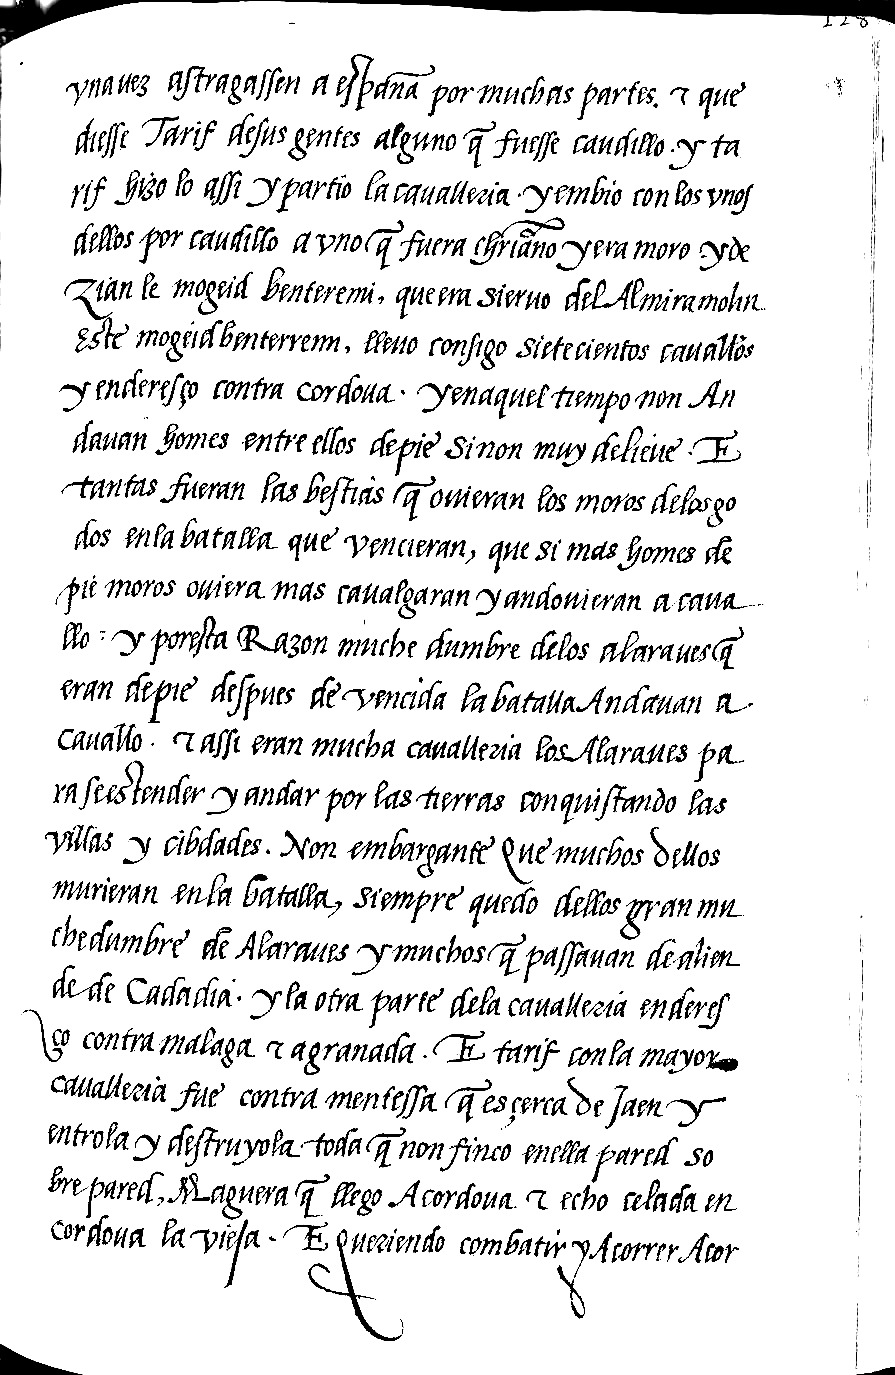 128
vna uez astragassen a espana por muchas partes. τ que
diesse Tarif desus gentes alguno q̃ fuesse caudillo. y ta
rif hizo lo assi y partio la caualleria. y embio con los vnos
dellos por caudillo a vno q̃ fuera chriãno y era moro y de
zian le mogeid benteremi, que era sieruo del Almiramolin
Este mogeid benterrem, lleuo consigo sietecientos cauallos
y enderesço contra cordoua. y en aquel tiempo non An
dauan homes entre ellos de pie si non muy de lieue. E
tantas fueran las bestias q̃ ouieran los moros delos go
dos en la batalla que vencieran, que si mas homes de
pie moros ouiera mas caualgaran y andouieran a caua
llo: y por esta Razon muche dumbre delos alaraues q̃
eran de pie despues de vencida la batalla Andauan a
cauallo. τ assi eran mucha caualleria los Alaraues pa
ra se estender y andar por las tierras conquistando las
villas y cibdades. Non embargante Que muchos dellos
murieran en la batalla, siempre quedo dellos gran mu
chedumbre de Alaraues y muchos q̃ passauan de alien
de de Cadadia. y la otra parte dela caualleria enderes
ço contra malaga τ a granada. E tarif con la mayor
caualleria fue contra mentessa q̃ es çerca de Jaen y
entrola y destruyola toda q̃ non finco enella pared so
bre pared, Maguera q̃ llego A cordoua τ echo celada en
cordoua la vieja. E Queriendo combatir y Acorrer A cor